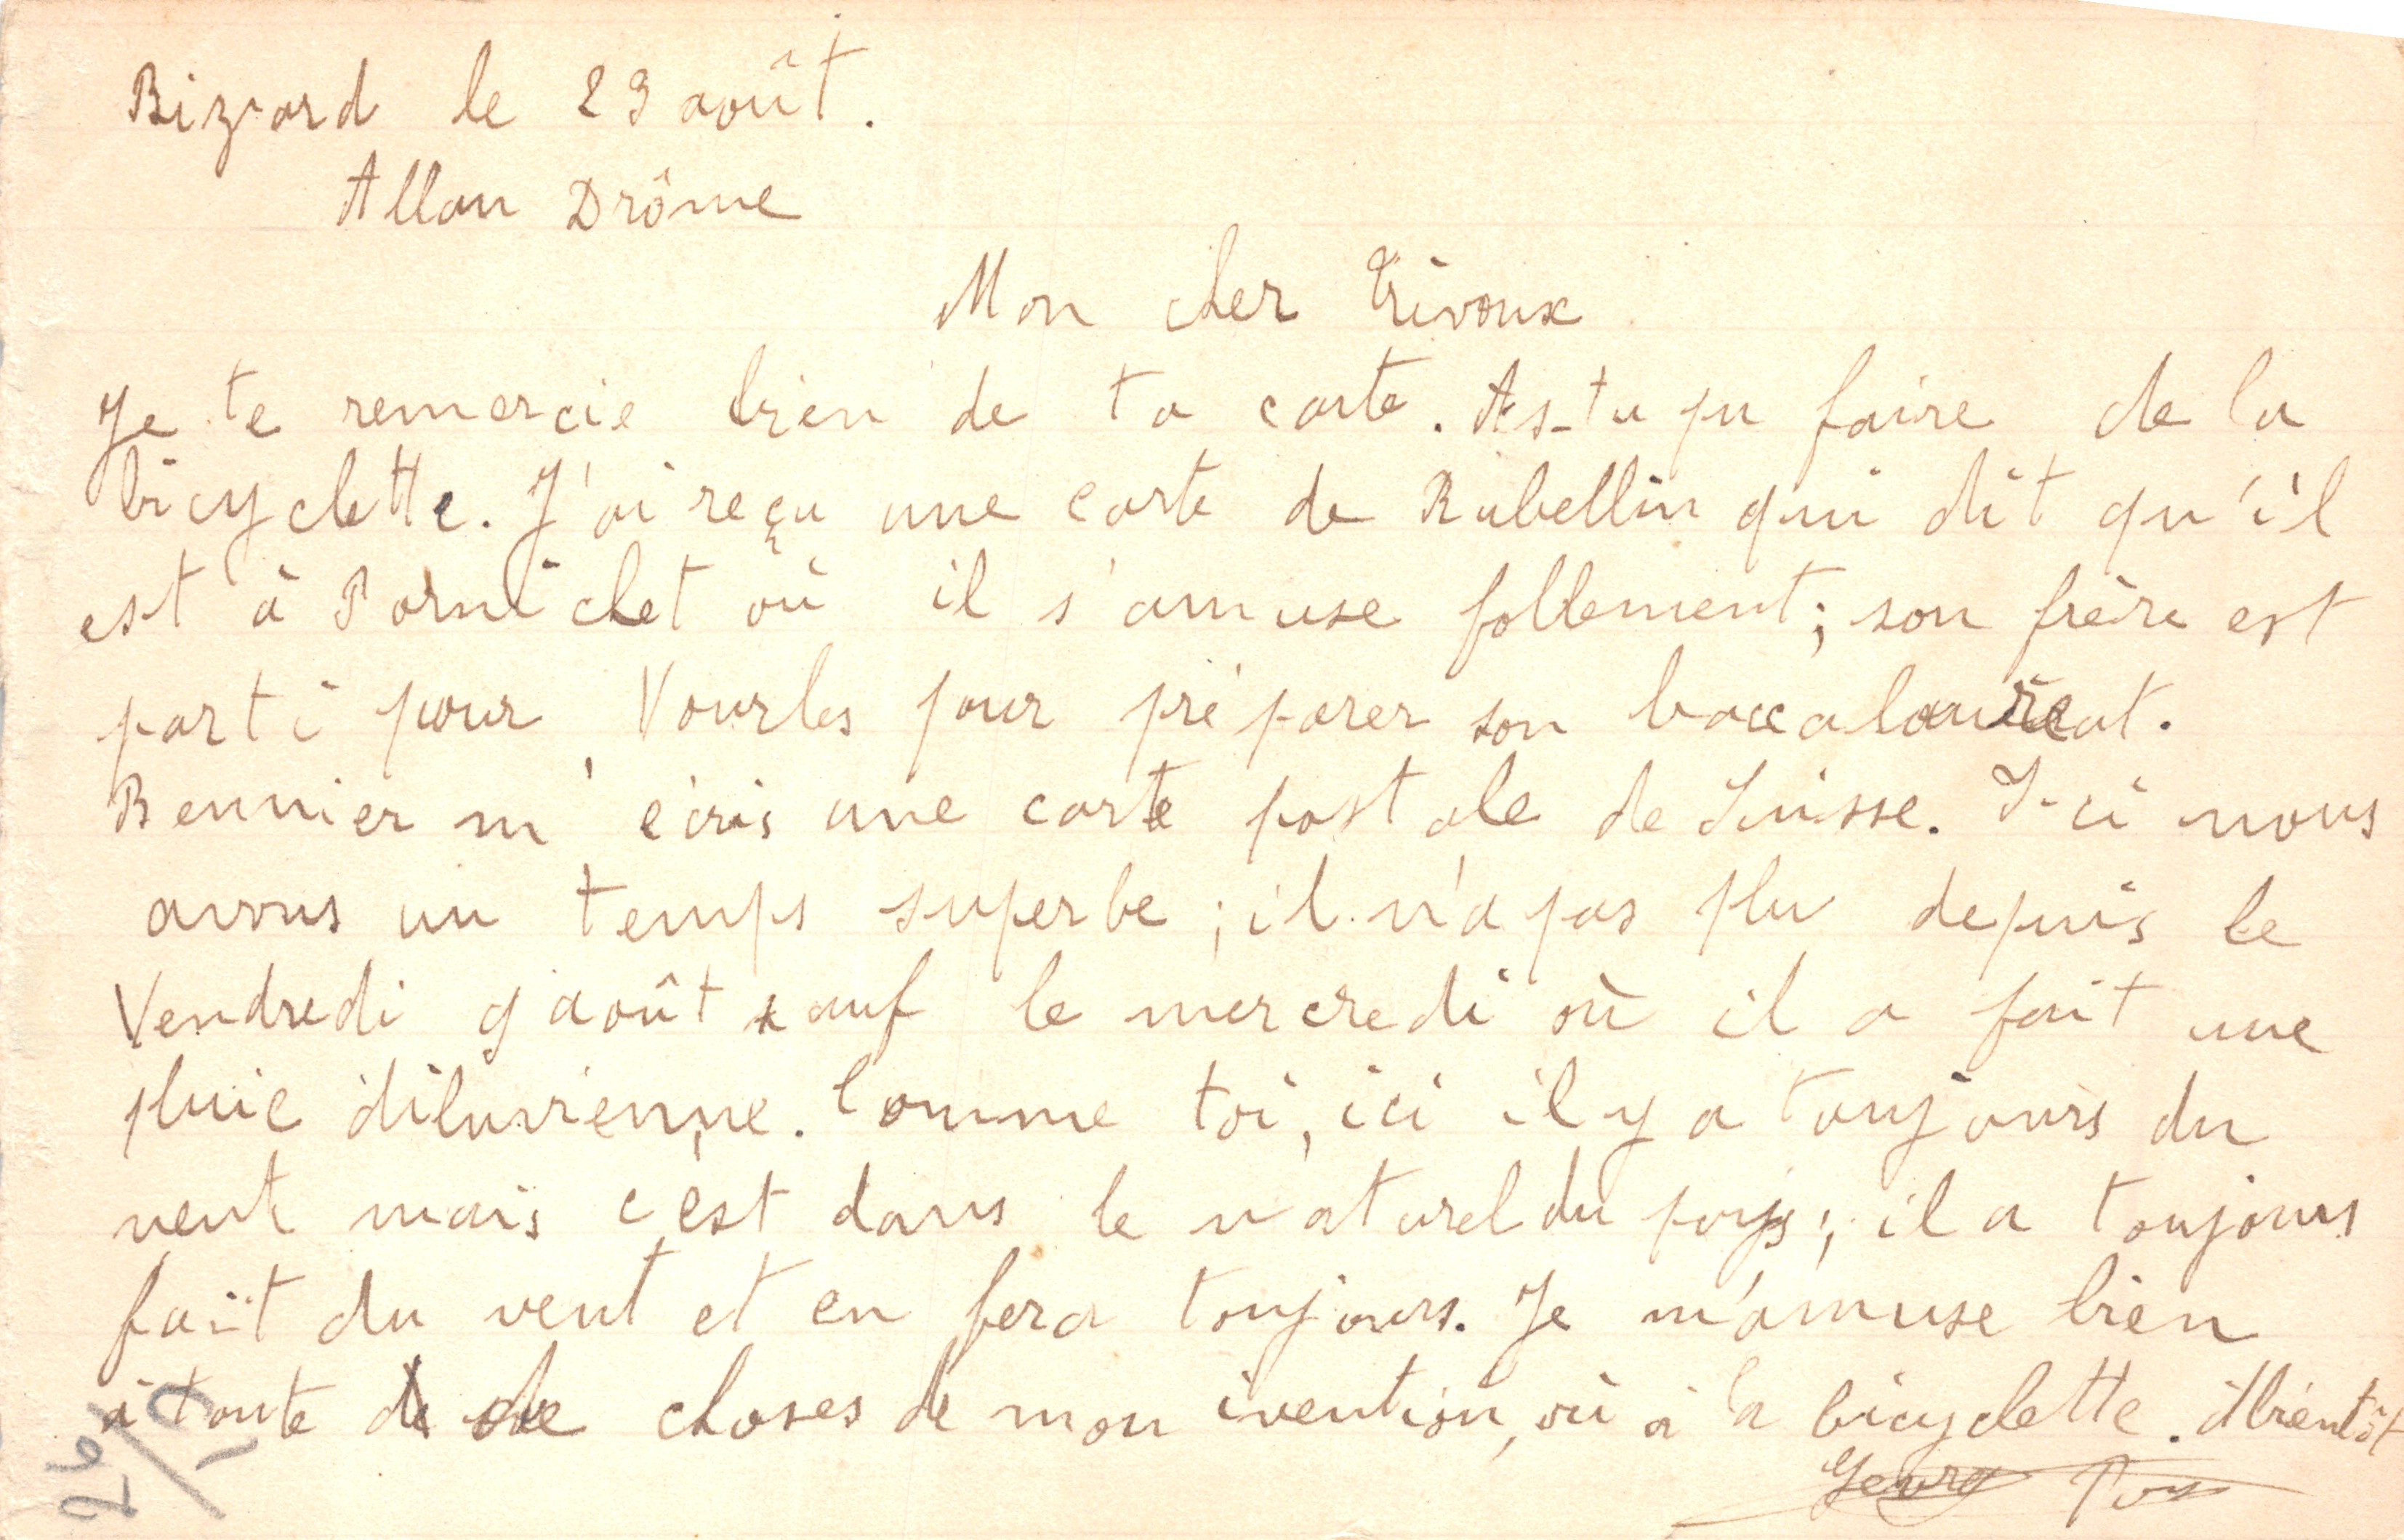 Bizard le 29 août.
Allan Drôme
Mon cher Trivoux
Je te remercie bien de ta carte. As-tu pu faire de la
bicyclette. J'ai reçu une carte de Rubellin qui dit qu'il
est à Pornichet où il s'amuse follement; son frère est
parti pour Vourles pour préparer son baccalauréat.
Bennier m'écris une carte postale de Suisse. Ici nous
avons un temps superbe; il n'a pas plu depuis le
Vendredi 9 août sauf le mercredi où il a fait une
pluie diluvienne. Comme toi, ici il y a toujours du
vent mais c'est dans le naturel du pays; il a toujours
fait du vent et en fera toujours. Je m'amuse bien
à toute de choses de mon ivention, où à la bicyclette. Abientôt
Georg
26/